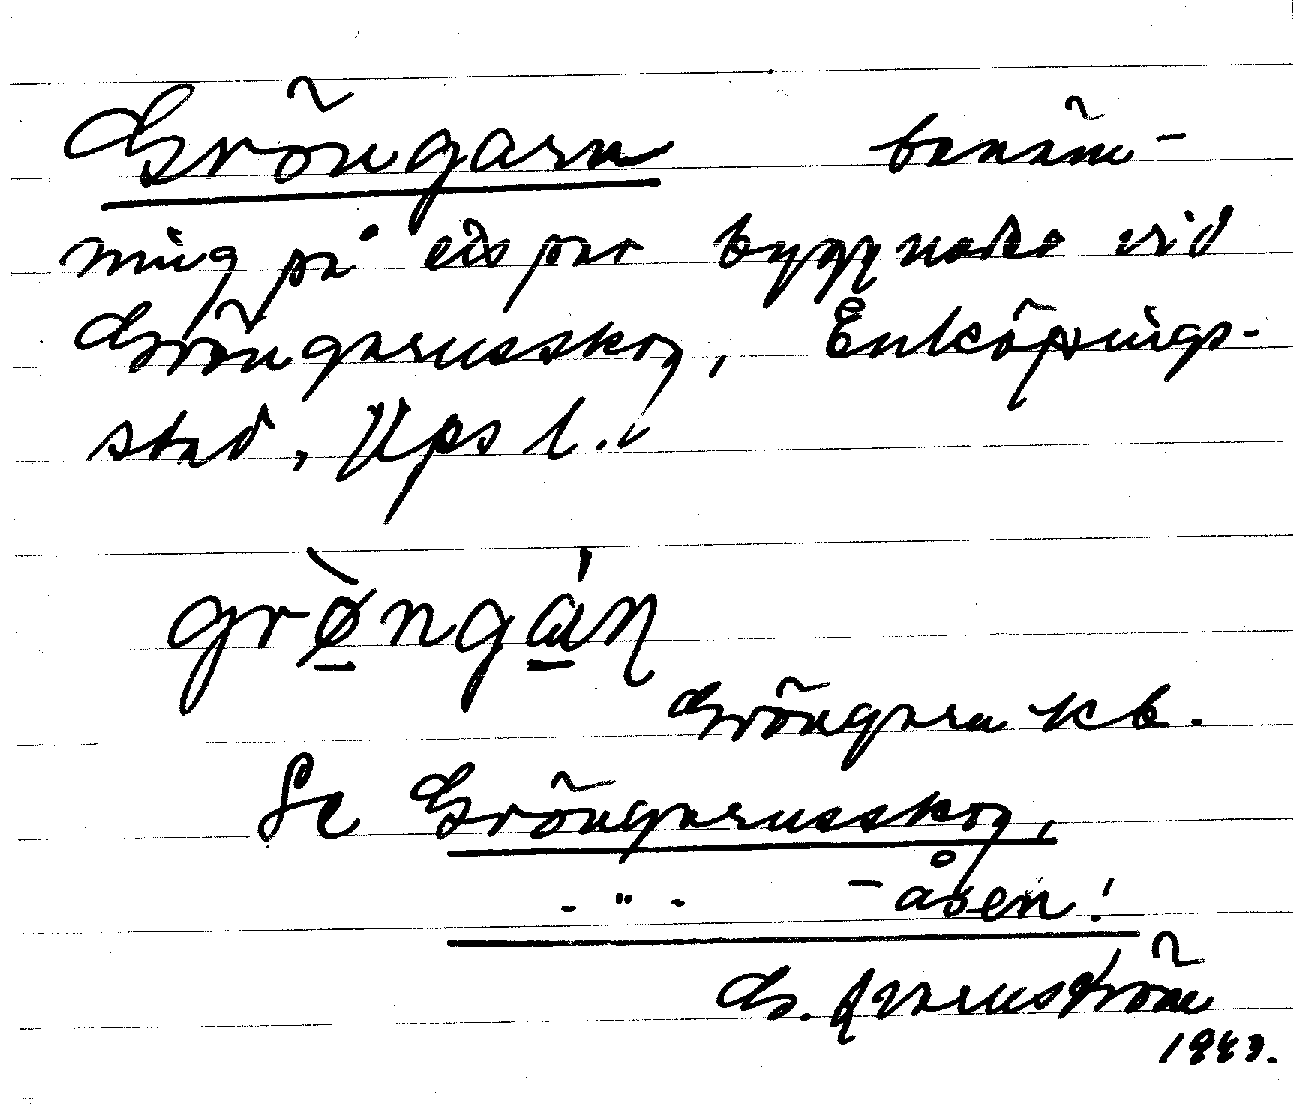 Gröngarn benäm-
ning på ett par byggnader vid
Gröngarnsskog, Enköpings-
stad, Upsl.
grø̀ngáɳ
Gröngarn kb.
Se Gröngarnsskog,
- " - -åsen!
G. Qvarnström